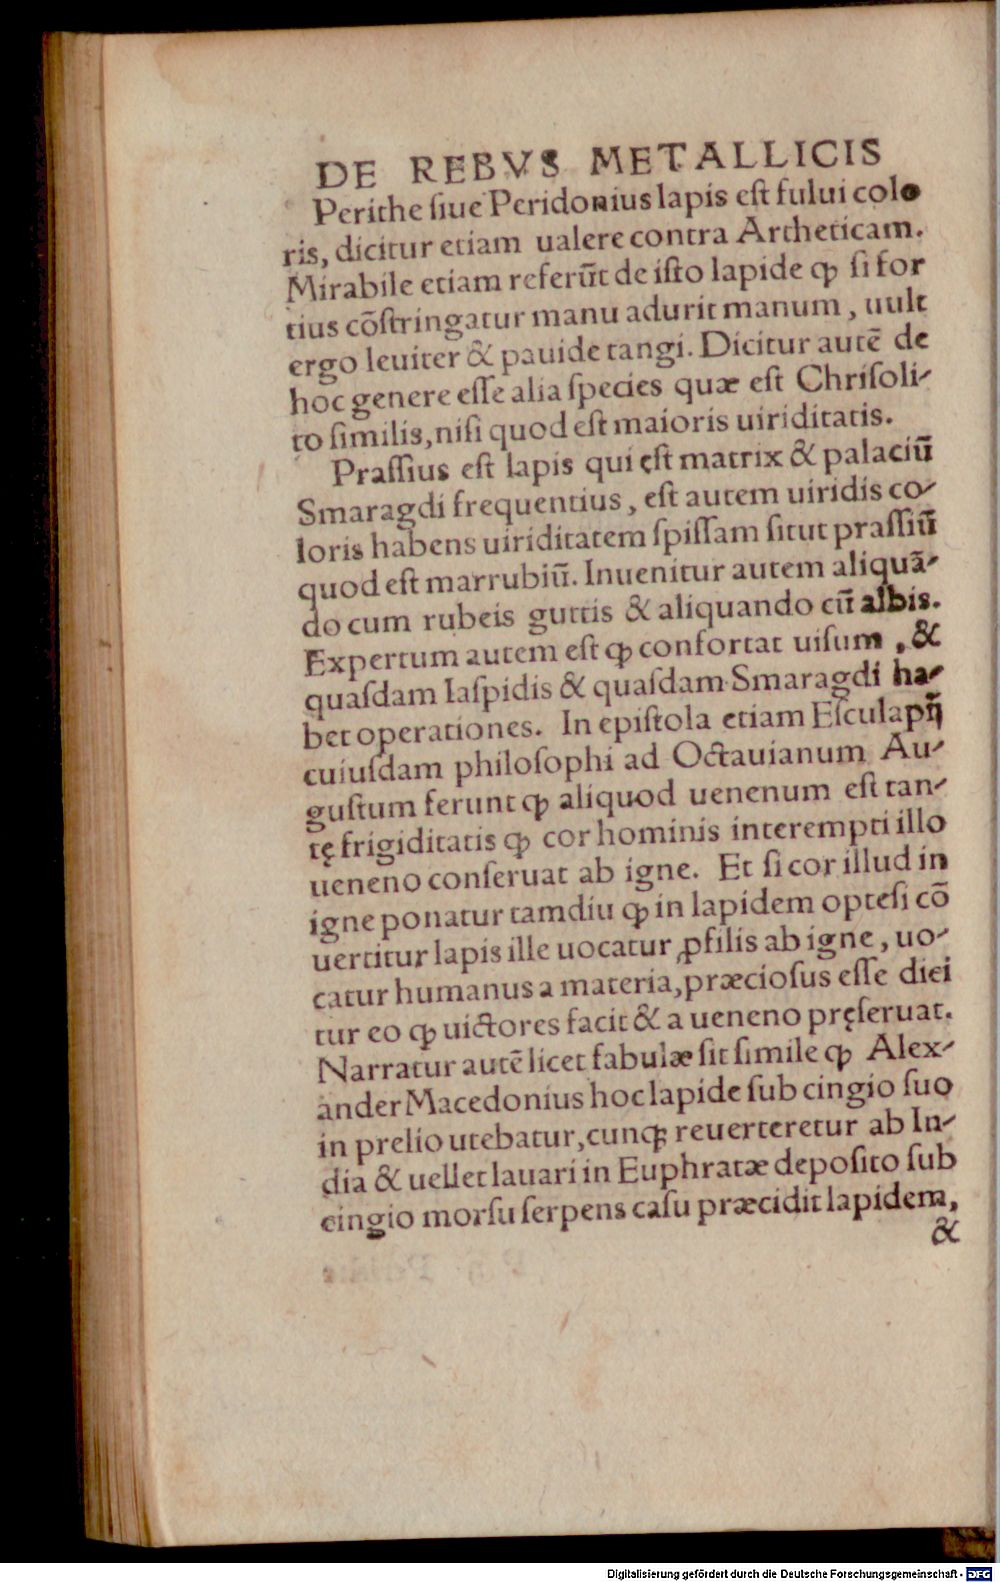 DE REBVS METALLICIS
Perithe ſiue Peridonius lapis eſt fului colo
ris, dicitur etiam ualere contra Artheticam.
Mirabile etiam referūt de iſto lapide ꝙ ſi for
tius cōſtringatur manu adurit manum, uult
ergo leuiter & pauide tangi. Dicitur autē de
hoc genere eſſe alia ſpecies quæ eſt Chriſoli-
to ſimilis, niſi quod eſt maioris uiriditatis.
Praſſius eſt lapis qui eſt matrix & palaciū
Smaragdi frequentius, eſt autem uiridis co-
loris habens uiriditatem ſpiſſam ſitut praſſiū
quod eſt marrubiū. Inuenitur autem aliquā-
do cum rubeis guttis & aliquando cū albis.
Expertum autem eſt ꝙ confortat uiſum, &
quaſdam Iaſpidis & quaſdam Smaragdi ha-
bet operationes. In epiſtola etiam Eſculapij
cuiuſdam philoſophi ad Octauianum Au-
guſtum ferunt ꝙ aliquod uenenum eſt tan-
tę frigiditatis ꝙ cor hominis interempti illo
ueneno conſeruat ab igne. Et ſi cor illud in
igne ponatur tamdiu ꝙ in lapidem opteſi cō
uertitur lapis ille uocatur ꝓfilis ab igne, uo-
catur humanus a materia, præcioſus eſſe dici
tur eo ꝙ uictores facit & a ueneno pręſeruat.
Narratur autē licet fabulæ ſit ſimile ꝙ Alex-
ander Macedonius hoc lapide ſub cingio ſuo
in prelio utebatur, cunqꝫ reuerteretur ab In-
dia & uellet lauari in Euphratæ depoſito ſub
cingio morſu ſerpens caſu præcidit lapidem,
&
Digitalisierung gefördert durch die Deutsche Forschungsgemeinschaft - DFG